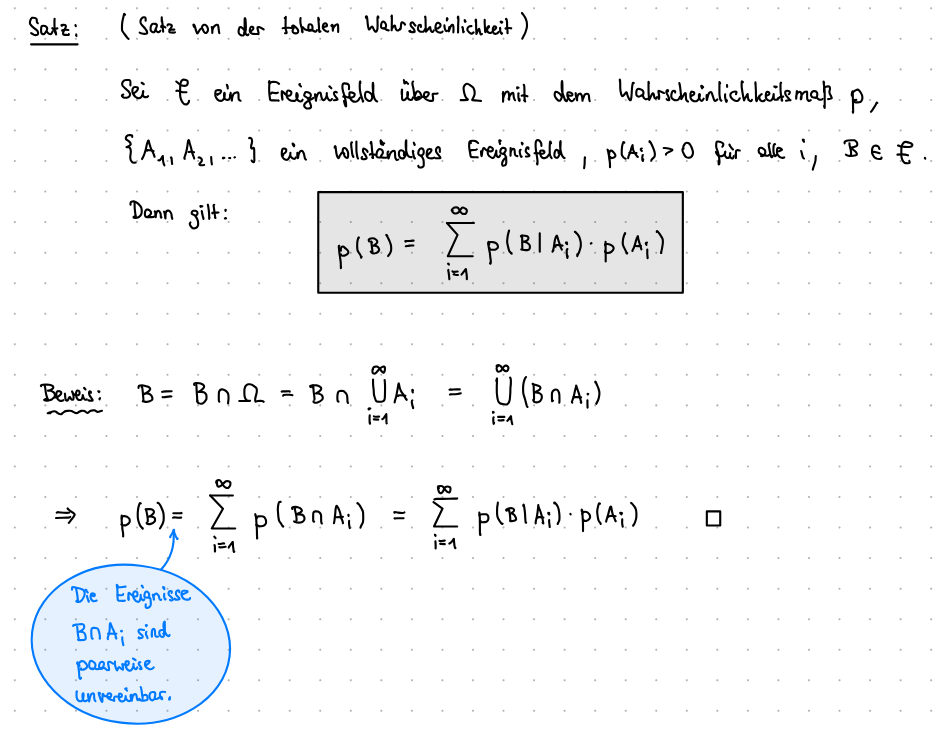 Satz: (Satz von der totalen Wahrscheinlichkeit)
Sei ℰ ein Ereignisfeld über Ω mit dem Wahrscheinlichkeitsmaß p,
{A₁, A₂, ...} ein vollständiges Ereignisfeld, p(Aᵢ) > 0 für alle i, B ∈ ℰ.
Dann gilt: p(B) = ∑_{i=1}^{∞} p(B|Aᵢ) · p(Aᵢ)
Beweis: B = B ∩ Ω = B ∩ ⋃_{i=1}^{∞} Aᵢ = ⋃_{i=1}^{∞} (B ∩ Aᵢ)
⇒ p(B) = ∑_{i=1}^{∞} p(B ∩ Aᵢ) = ∑_{i=1}^{∞} p(B|Aᵢ) · p(Aᵢ) □
Die Ereignisse
B ∩ Aᵢ sind
paarweise
unvereinbar.